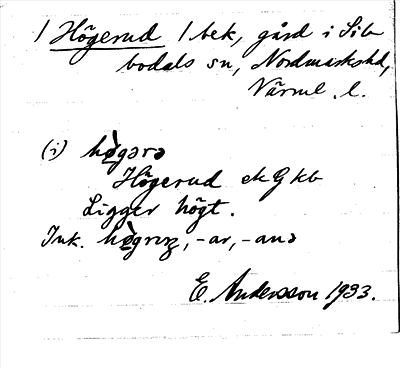 1 Högerud 1 bek, gård i Sil-
bodals sn, Nordmarkshd,
Värml. l.
(i) hø̀gərə
Högerud ek G kb
Ligger högt.
Ink. hø̀grɪŋ, -ar, -anə
E. Andersson 1933.